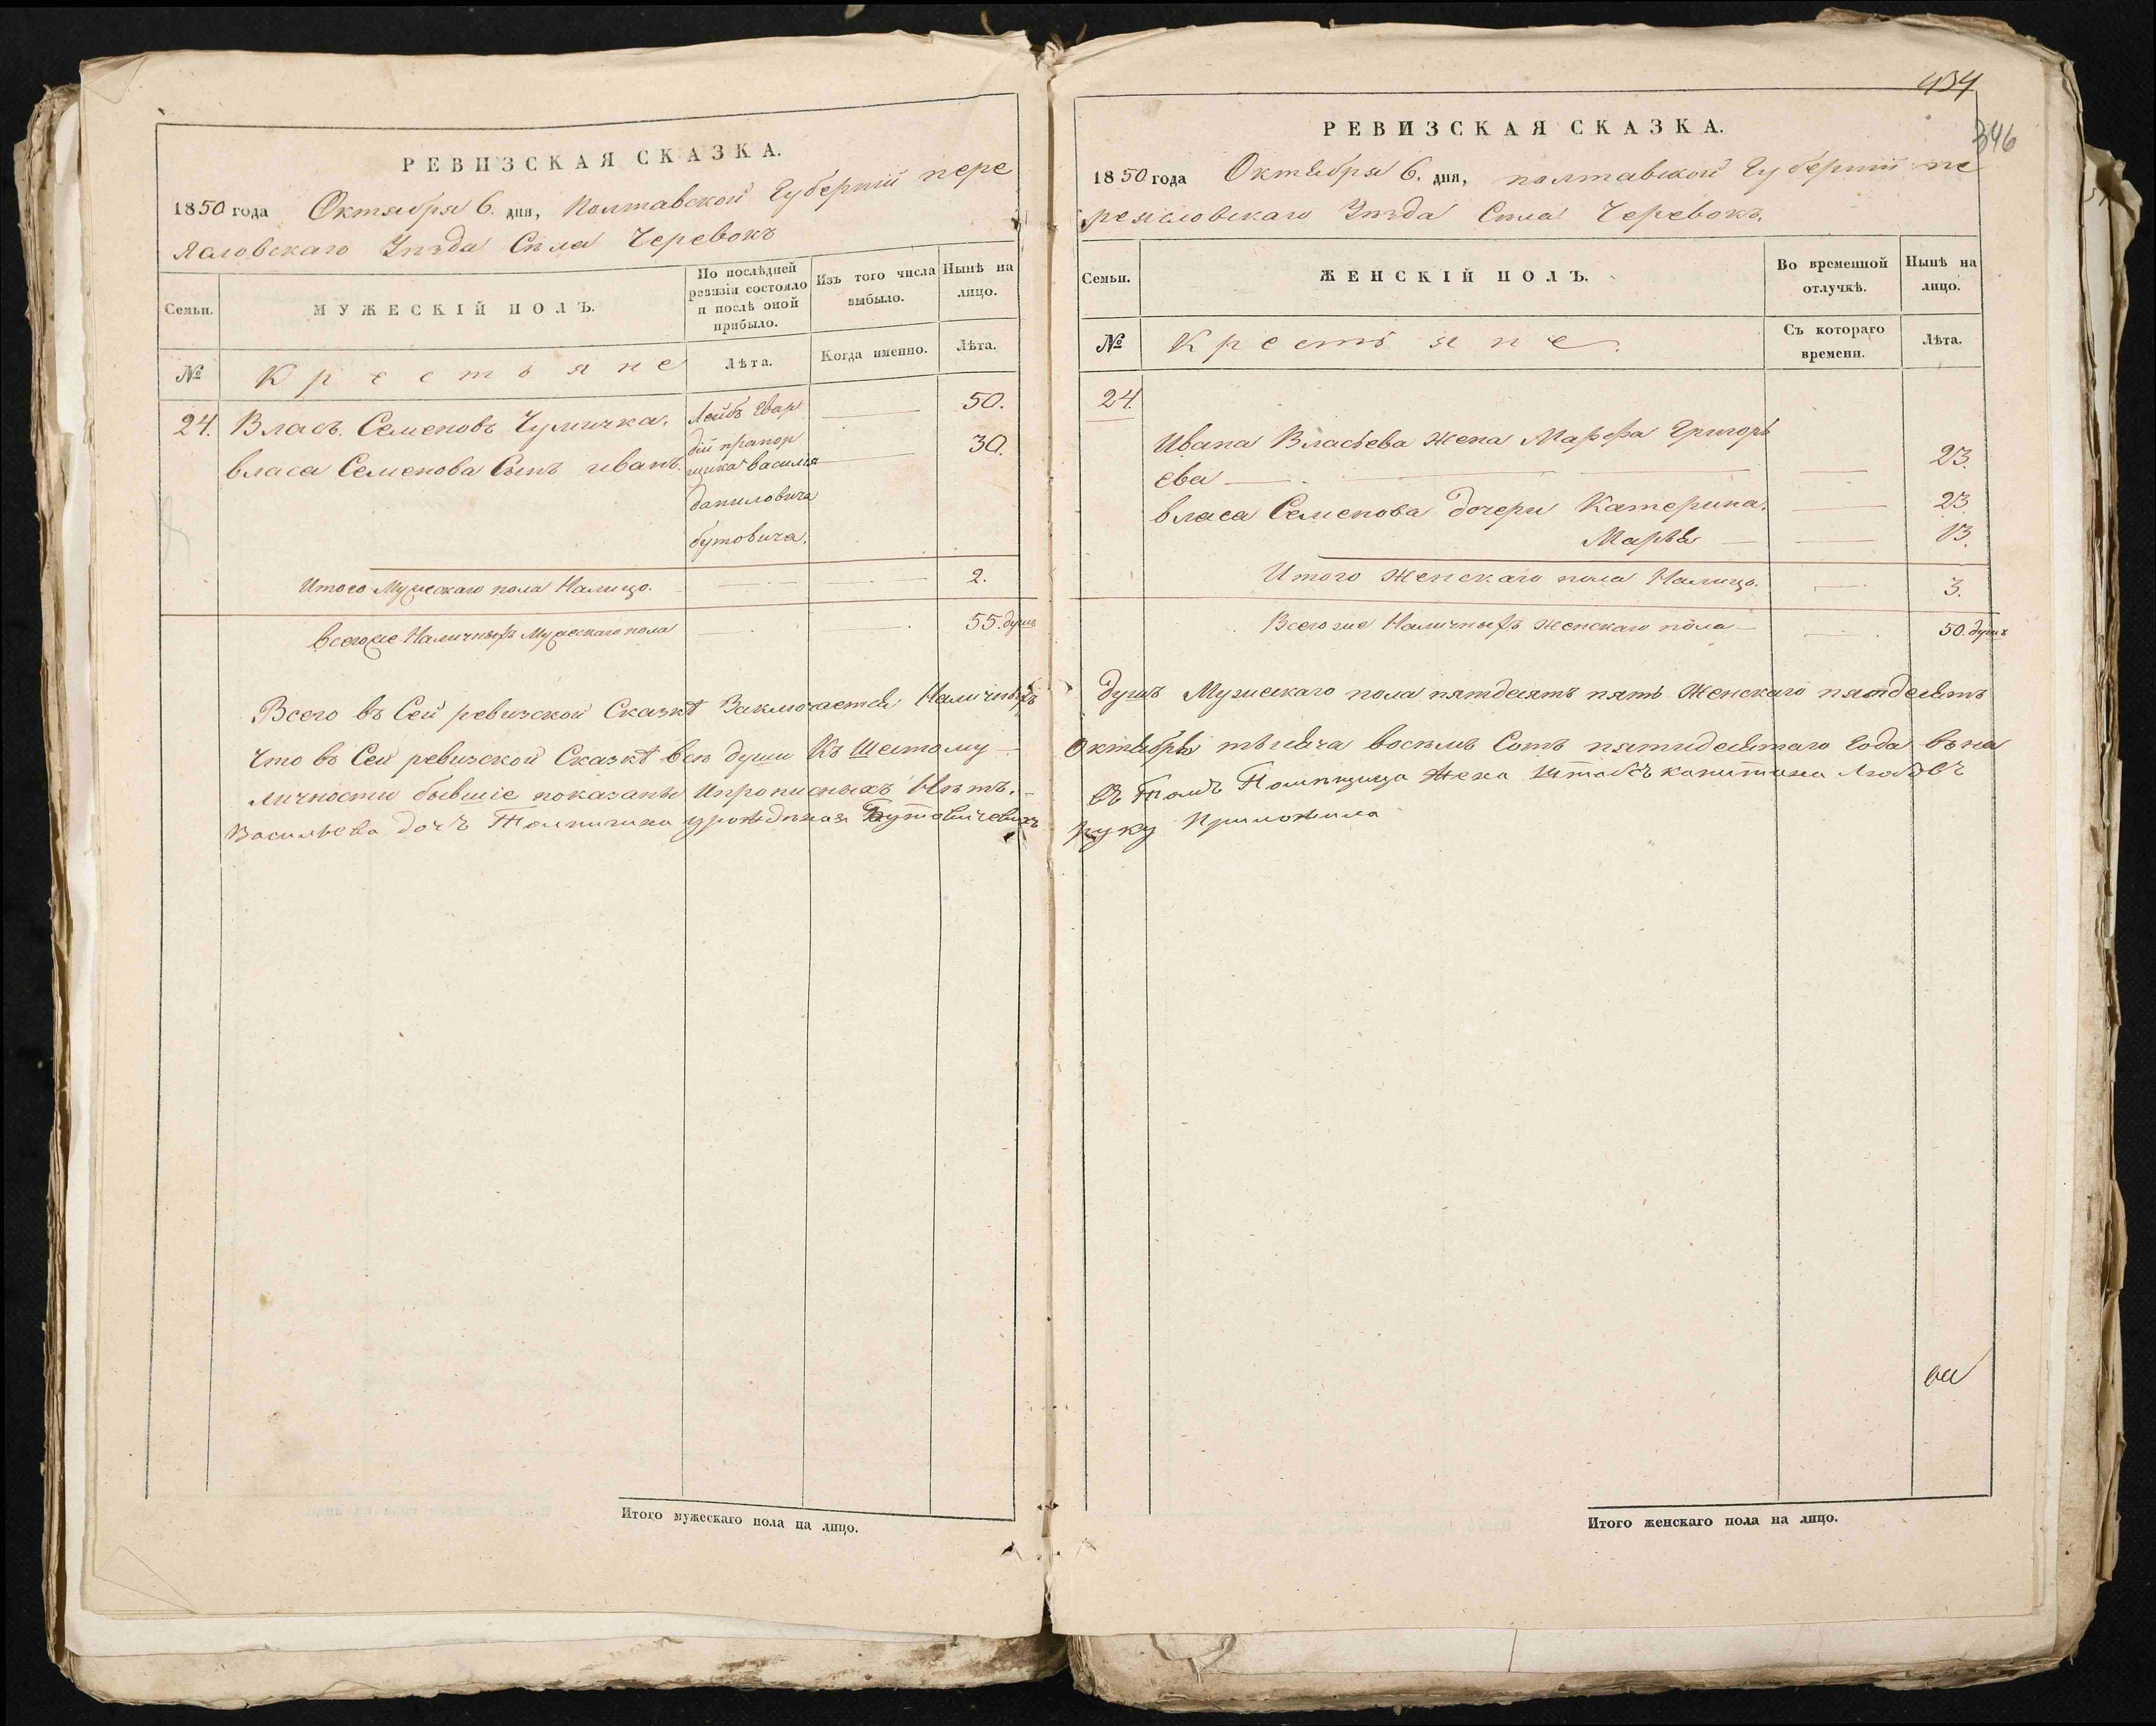 РЕВИЗСКАЯ СКАЗКА.
1850 года Октября 6. дня, Полтавской Губерніи пере
яславскаго Уезда Села Черевокъ
Семьи.
МУЖЕСКІЙ ПОЛЪ.
По послѣдней
ревизіи состояло
и послѣ оной
прибыло.
Изъ того числа
выбыло.
Нынѣ на
лицо.
№
Крестьяне
Лѣта.
Когда именно.
Лѣта.
24. Власъ Семеновъ Чумичка. Лейбъ Гвар 50.
власа Семенова Сынъ иванъ. дій прапор 30.
щика василія
даниловича
бутовича.
Итого Мужескаго пола Налицо. 2.
Всегоже Наличныхъ Мужескаго пола 55. душъ
Всего въ Сей ревизской Сказкѣ Заключается Наличныхъ
Что въ Сей ревизской Сказкѣ все души Къ Шестому
личности бывшіе показаны Ипрописныхъ Нетъ.
Васильева дочъ урожденная Бутовичевихъ
Итого мужескаго пола на лицо.
434
346
РЕВИЗСКАЯ СКАЗКА.
1850 года Октября 6. дня, полтавской Губерніи пе
реясловскаго Уезда Села Черевокъ.
Семьи.
ЖЕНСКІЙ ПОЛЪ.
Во временной
отлучкѣ.
Нынѣ на
лицо.
№
Крестьяне.
Съ котораго
времени.
Лѣта.
24.
Ивана Власьева Жена Марфа Григорь
ева 23.
власа Семенова дочери Катерина. 23.
Марья 13.
Итого Женскаго пола Налицо. 3.
Всегоже Наличныхъ Женскаго пола 50. душъ
душъ Мужескаго пола пятдесятъ пять Женскаго пятдесятъ
Октября тысяча восемь Сотъ пятидесятаго Года въ на
въ томъ Помещица Жена Штабсъ капитана Любовъ
руку Приложила
Итого женскаго пола на лицо.